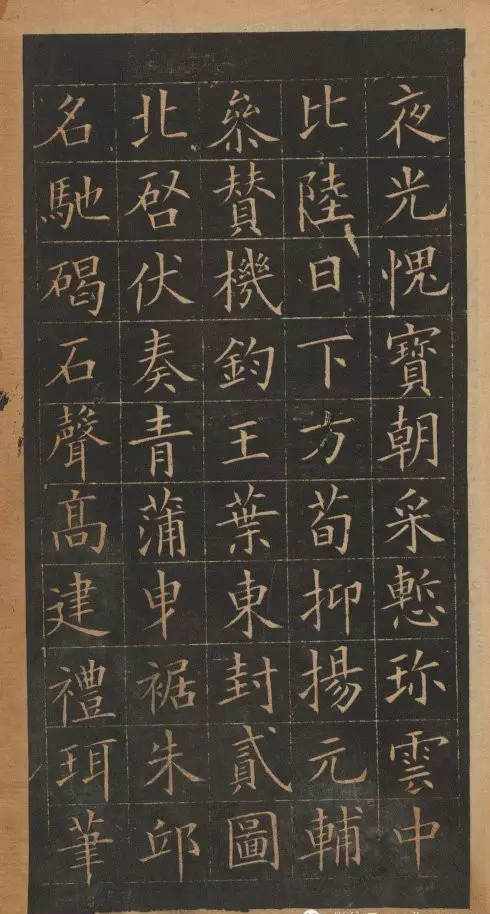 夜光愧寶朝采慙珎雲中
比陸日下方荀抑揚元輔
叅贊機鈞王葉東封貳圖
北啓伏奏青蒲申裾朱邸
名馳碣石聲髙建禮珥筆